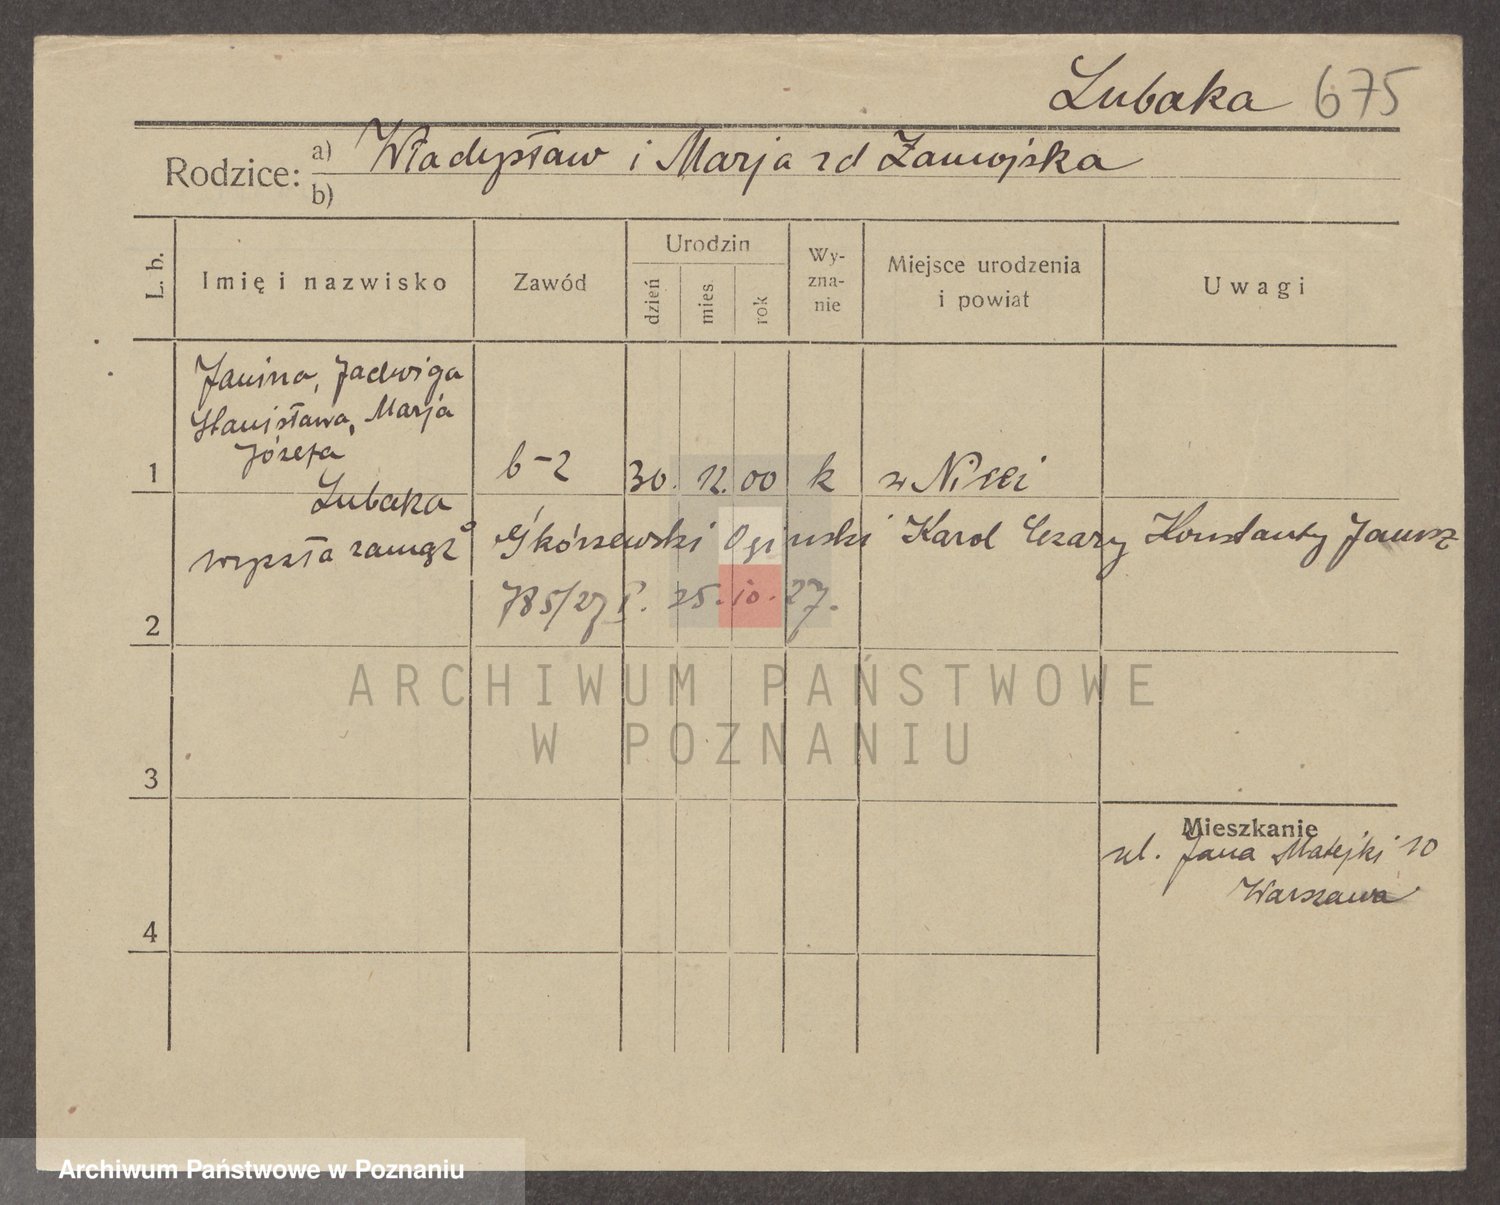 Lubaka 675
Rodzice: a) Władysław i Marja zd Zamojska
b)
L. b. Imię i nazwisko Zawód Urodzin dzień mies rok Wy-zna-nie Miejsce urodzenia i powiat Uwagi
Janina, Jadwiga
Stanisława, Marja
Józefa
1 Lubaka b-z 30. 12. 00 k w
wyszła zamąż Karol Cezary Konstanty Janusz
2 785/27 25. 10. 27.
ARCHIWUM PAŃSTWOWE
W POZNANIU
3
Mieszkanie
ul. Jana Matejki 10
Warszawa
4
Archiwum Państwowe w Poznaniu